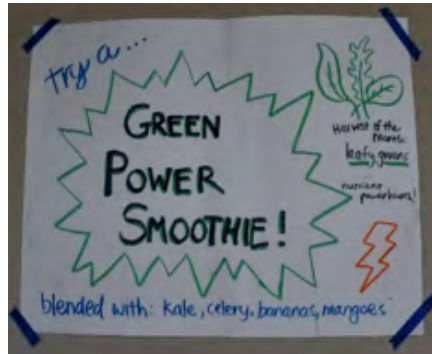 try a...
GREEN
POWER
SMOOTHIE!
Harvest of the
Month:
leafy greens
nutrient
powerhouse!
blended with: kale, celery, bananas, mangoes